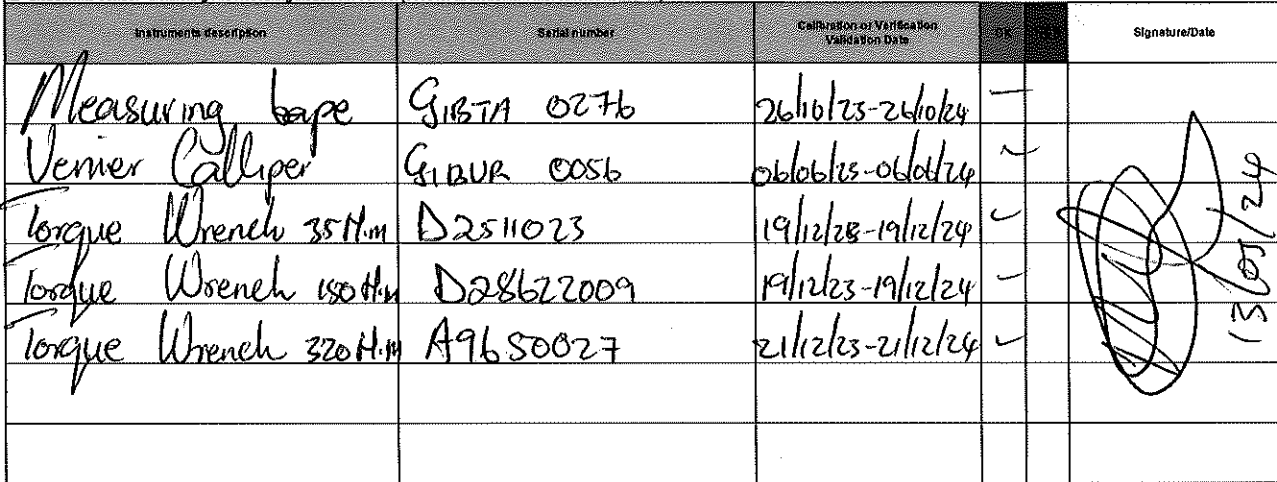 Instruments description Serial number Calibration or Verification Validation Date OK Signature/Date
Measuring tape GIBTA 0276 26/10/23-26/10/24
Vernier Calliper GIBUR 0056 06/06/23-06/06/24
Torque Wrench 35 N.m D2511023 19/12/23-19/12/24
Torque Wrench 150 N.m D28622009 19/12/23-19/12/24
Torque Wrench 320 N.m A9650027 21/12/23-21/12/24
13/05/24